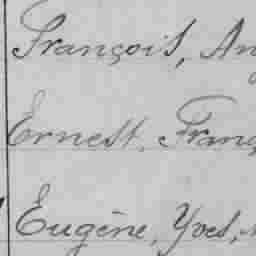 François, An
Ernest, Franç
Eugène, Yves,